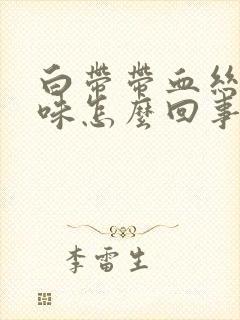 白帶帶血絲
味怎麼回事
李雷生